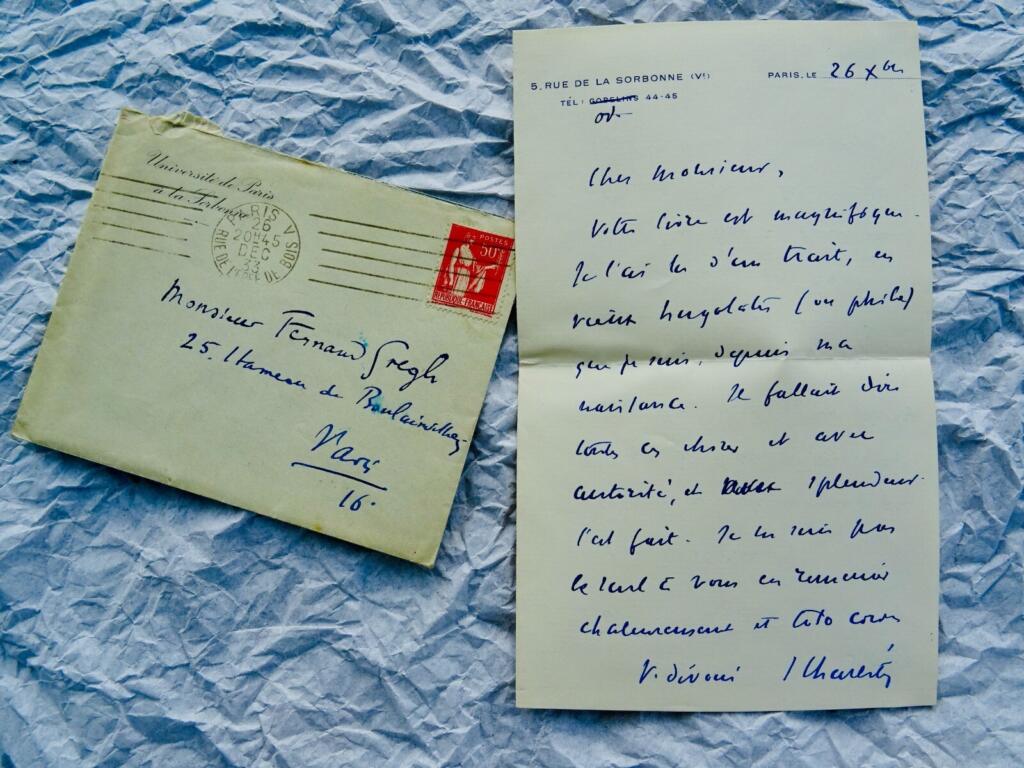 Université de Paris
à la Sorbonne
PARIS V
26
20H45
DEC
33
RUE DE L'EPEE DE BOIS
POSTES
50c
REPUBLIQUE FRANCAISE
Monsieur Fernand Gregh
25, Hameau de Boulainvilliers
Paris
16
5, RUE DE LA SORBONNE (Ve)
PARIS, LE 26 Xbre
TÉL : GOBELINS 44-45
od-
Cher Monsieur,
Votre livre est magnifique.
Je l'ai lu d'un trait, en
vieux hugolatre (ou phile)
que je suis, depuis ma
naissance. Il fallait dire
toutes ces choses et avec
autorité, et splendeur.
C'est fait. Je ne suis pas
le seul à vous en remercier
chaleureusement et toto corde
V. dévoué S Charléty